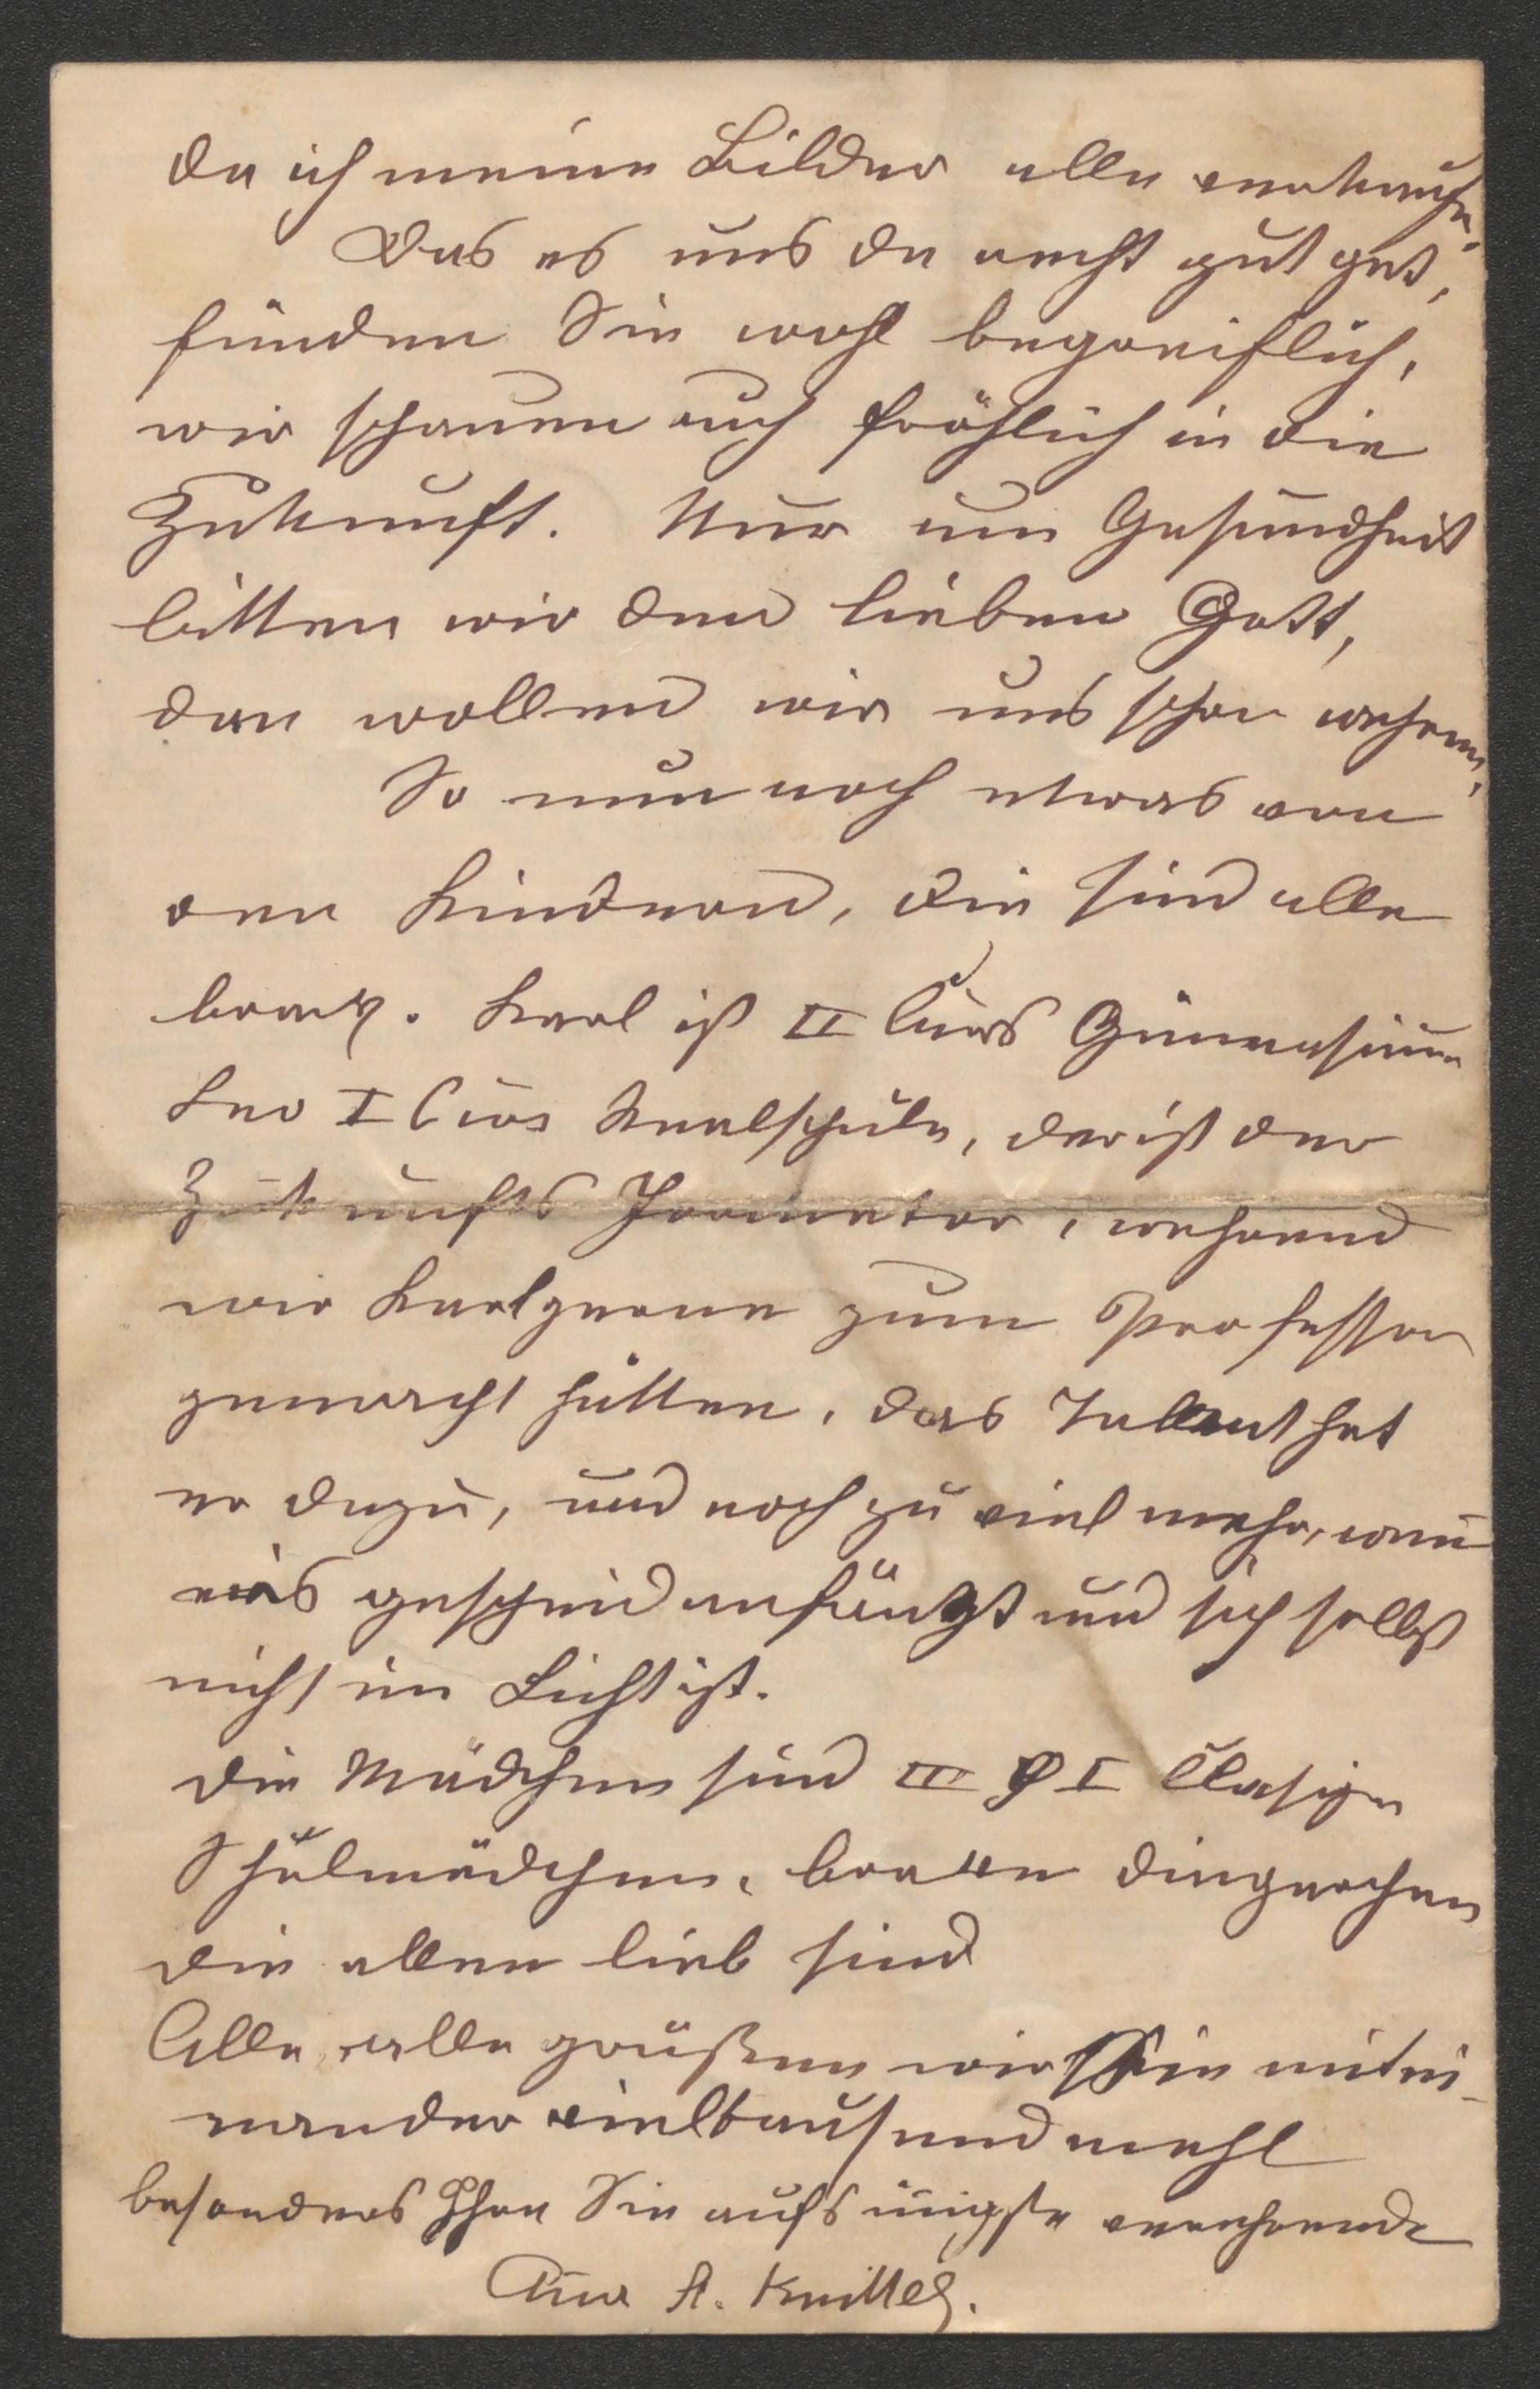 da ich meine Bilder alle verkaufe.
Das es uns da recht gut get,
fünden Sie wohl begreiflich,
wir schauen auch fröhlich in die
Zukunft. Nur um Gesundheit
bitten wir den lieben Gott,
dan wollen wir uns schon wehren.
So nun noch etwas von
den Kindern, die sind alle
brav. Karl ist II Curs Gimnasium
Leo I Curs Realschule, der ist der
Zukunfts, wehrend
wir Karl gerne zum Professor
gemacht hätten, das Talent hat
er dazu, und noch zu viel mehr, wenn
ers gescheid anfängt und sich selbst
nicht im Licht ist.
die Mädchen sind III & I Clasige
Schulmädchen, brave dingerchen
die allen lieb sind
Alle, alle grüßen wir Sie mitei-
nander vieltausend mahl
besonders Ihre Sie aufs inigste verehrende
Anna St. Knittel.